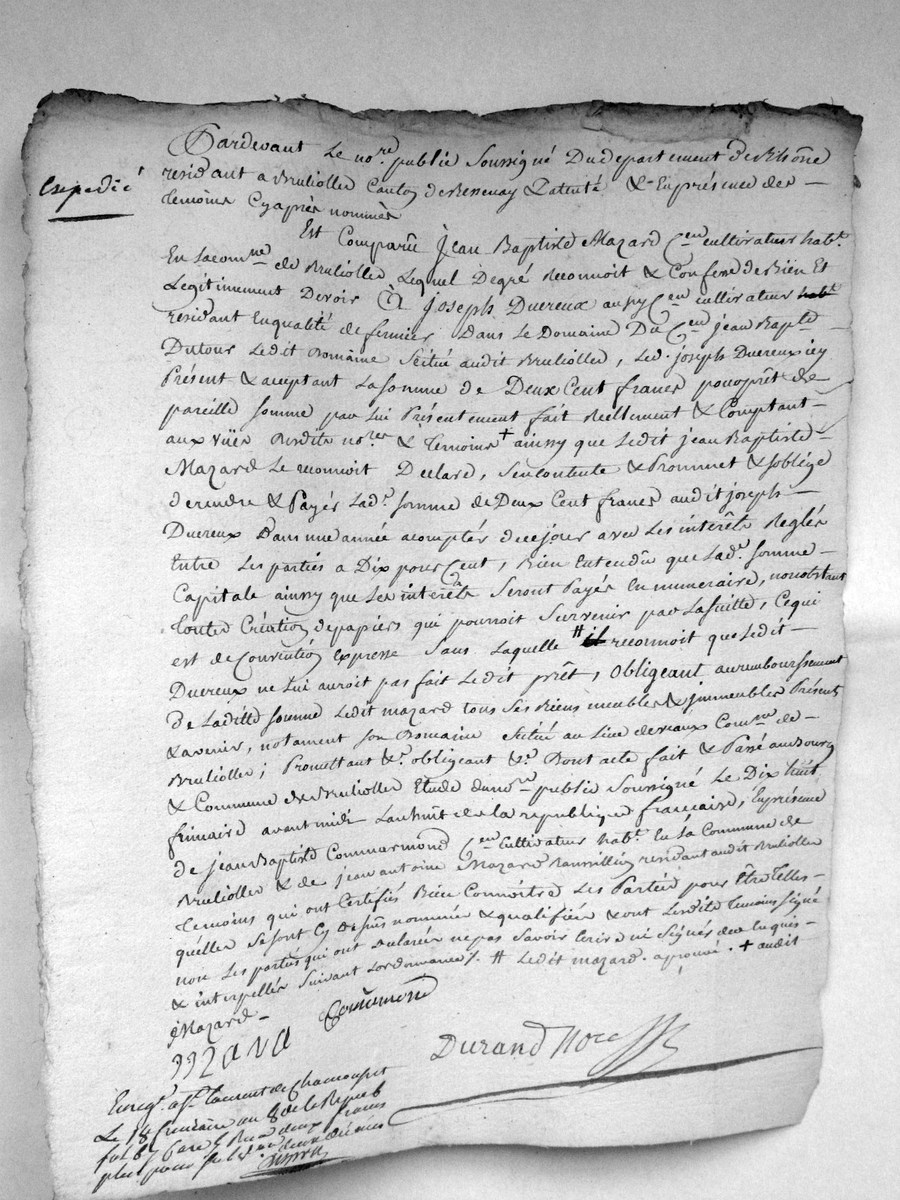 Pardevant Le no.re public Soussigné Du departement de Rhône
Expedié
residant a Brullioller Canton de Bessenay Patenté & En présence des
temoins Cyaprès nommés
Est Comparû Jean Baptiste Mazard C.en cultivateur hab.t
En La com.ne de Brullioller Lequel Degré Reconnoit & Confesse de Bien Et
Legitimement Devoir À Joseph Ducreux aussy C.en cultivateur habt
residant En qualité de fermier Dans Le Domaine Du C.en jean Bapt.e
Dutour Ledit Domaine Scitué audit Brullioller, Led. joseph Ducreux icy
Présent & acceptant La somme de Deux Cent francs pour prêt de
pareille somme par Lui Présentement fait Reellement & Comptant
aux vües Dudit no.re & temoins + ainsy que Ledit jean Baptiste
Mazard Le reconnoit Declare, S'en contente & Prommet & s'oblige
de rendre & Payer Lad.e somme de Deux Cent francs audit joseph
Ducreux Dans une année acompter de ce jour avec Les intérêts Reglés
Entre Les parties a Dix pour Cent, Bien Entendû que Lad.e somme
Capitale ainsy que Les intérêts Seront Payés En numeraire, nonobstant
toutes Création de papiers qui pourroit Survenir par La suitte, Ce qui
est de Convention Expresse Sans Laquelle # il reconnoit que Ledit
Ducreux ne Lui auroit pas fait Ledit prêt, Obligeant au remboursement
De Laditte somme Ledit mazard tous Ses Biens meubles & immeubles Présents
& avenir, notament son Domaine Scitué au Lieu de Com.ne de
Brullioller; Promettant &.a obligeant &.a Dont acte fait & Passé au Bourg
& Commune de Brullioller Etude du no.re public Soussigné Le Dix huit
frimaire avant midi Lan huit de la republique française, En présence
de jean Baptiste Commarmond C.en Cultivateur hab.t En La Commune de
Brullioller & de jean antoine Mazard residant audit Brullioller
temoins qui ont Certifiés Bien Connoitre Les Parties pour être telles
quelles Se sont Cy dessus nommées & qualifiées & ont Lesdits temoins Signé
non Les parties qui ont declarées ne pas Savoir Ecrire ni Signer de ce enquis
& interpellés Suivant L'ordonnance /. # Ledit mazard. aprouvé. + audit
Mazard
Mazard Commarmond
Durand Nore
Enreg.é a St Laurent de Chamousset
Le 18 frimaire an 8 de la Repub
deux francs